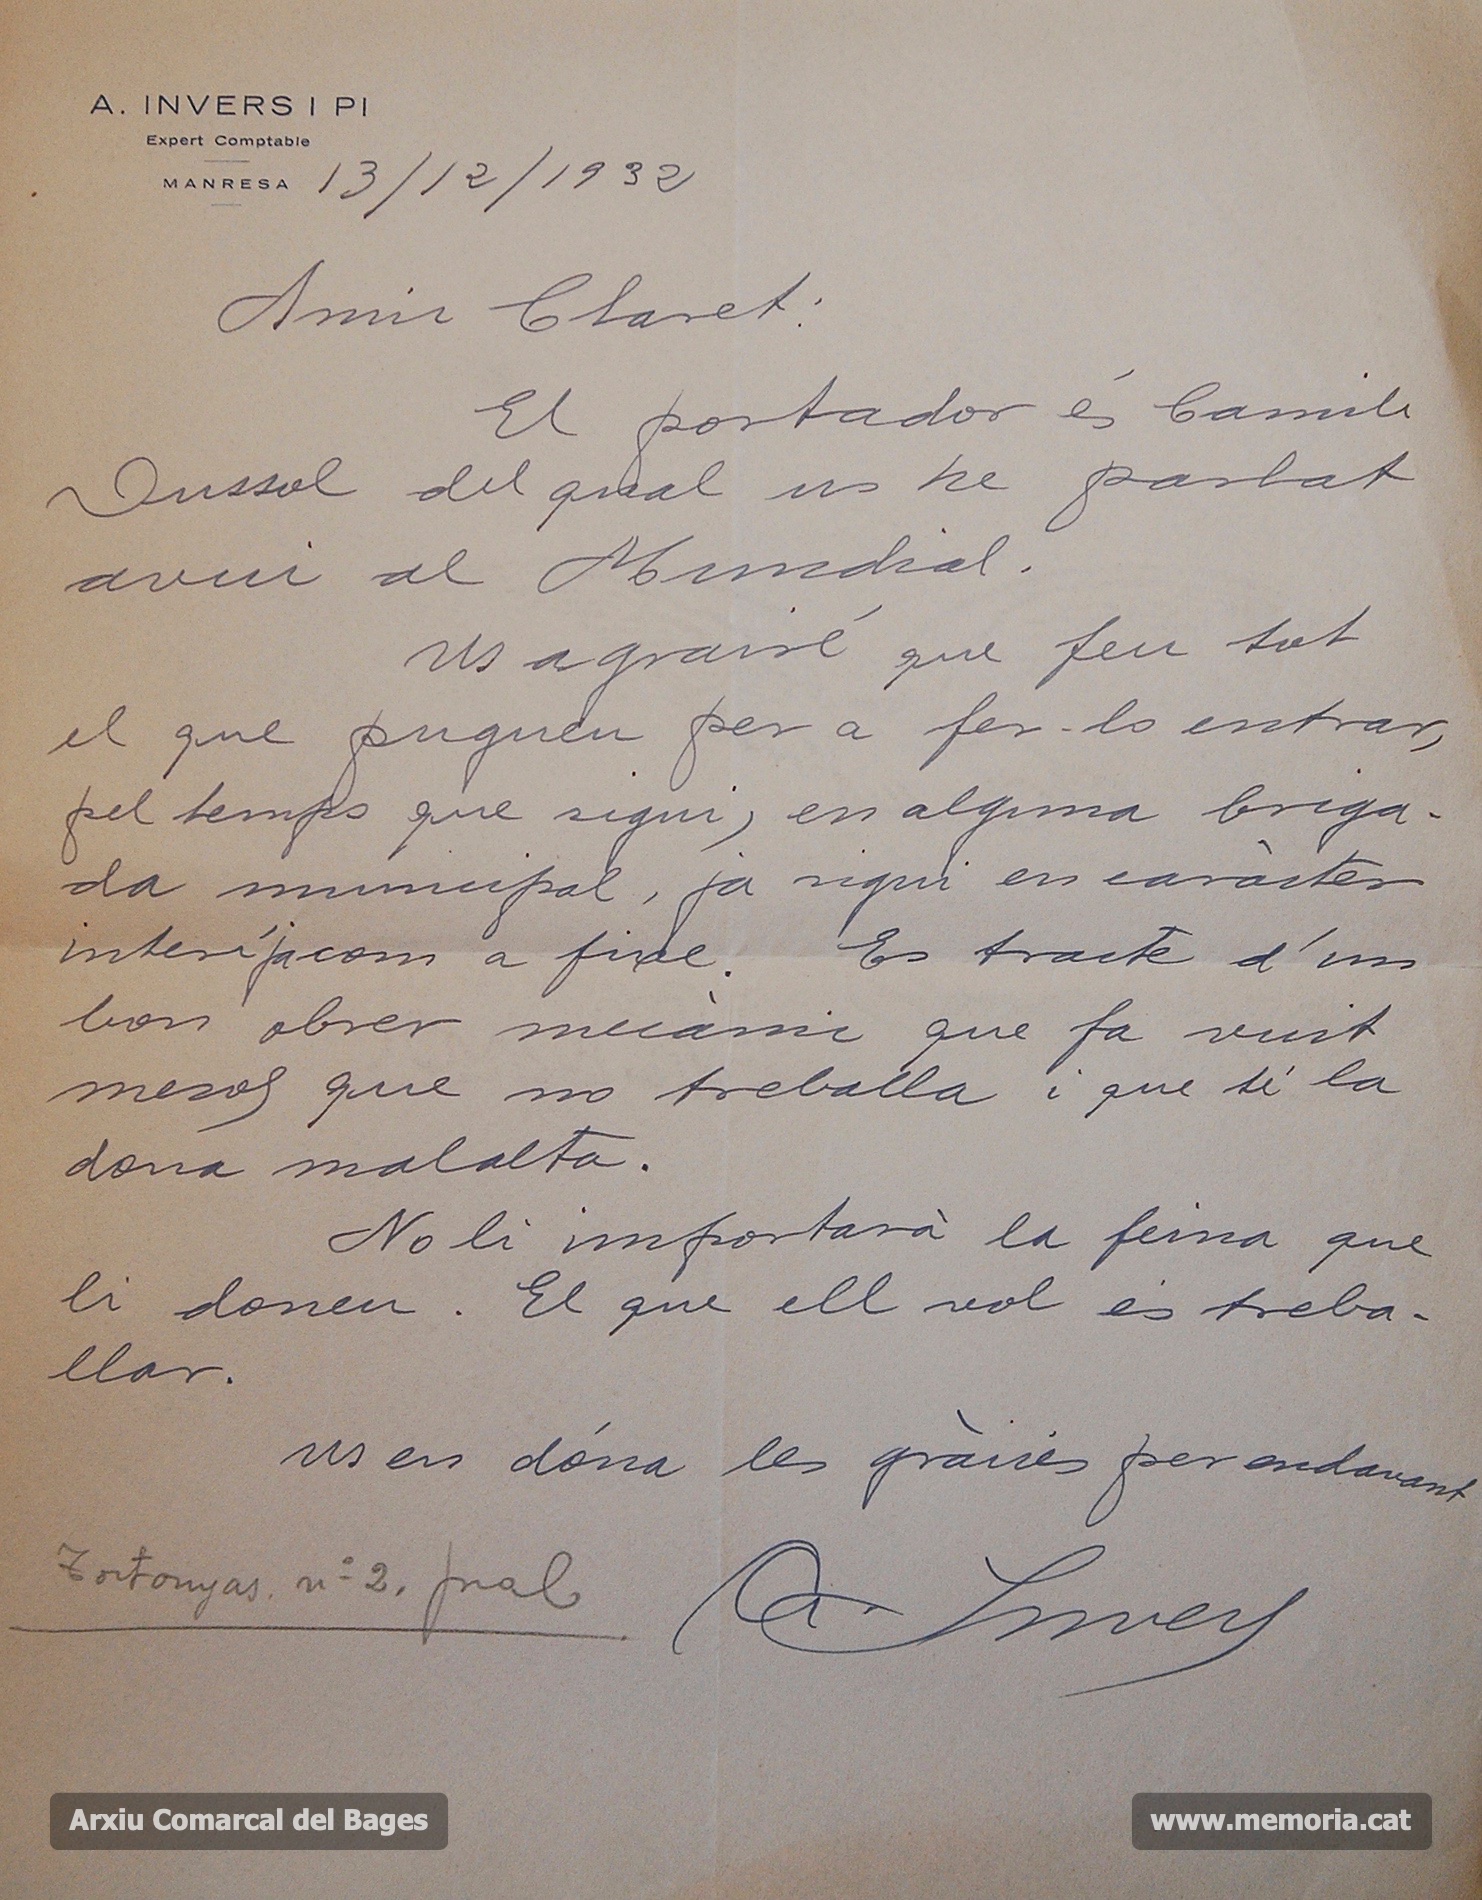 A. INVERS I PI
Expert Comptable
MANRESA 13/12/1932
Amic Claret:
El portador és Camil
Dussol del qual us he parlat
avui al Mundial.
Us agrairé que feu tot
el que pugueu per a fer-lo entrar,
pel temps que sigui, en alguna briga-
da municipal, ja sigui en caràcter
interí, ja com a fixe. Es tracte d'un
bon obrer mecànic que fa vuit
mesos que no treballa i que té la
dona malalta.
No li importarà la feina que
li doneu. El que ell vol és treba-
llar.
Us en dóna les gràcies per endavant
A. Invers
Tortonyas. nº 2. pral
Arxiu Comarcal del Bages
www.memoria.cat